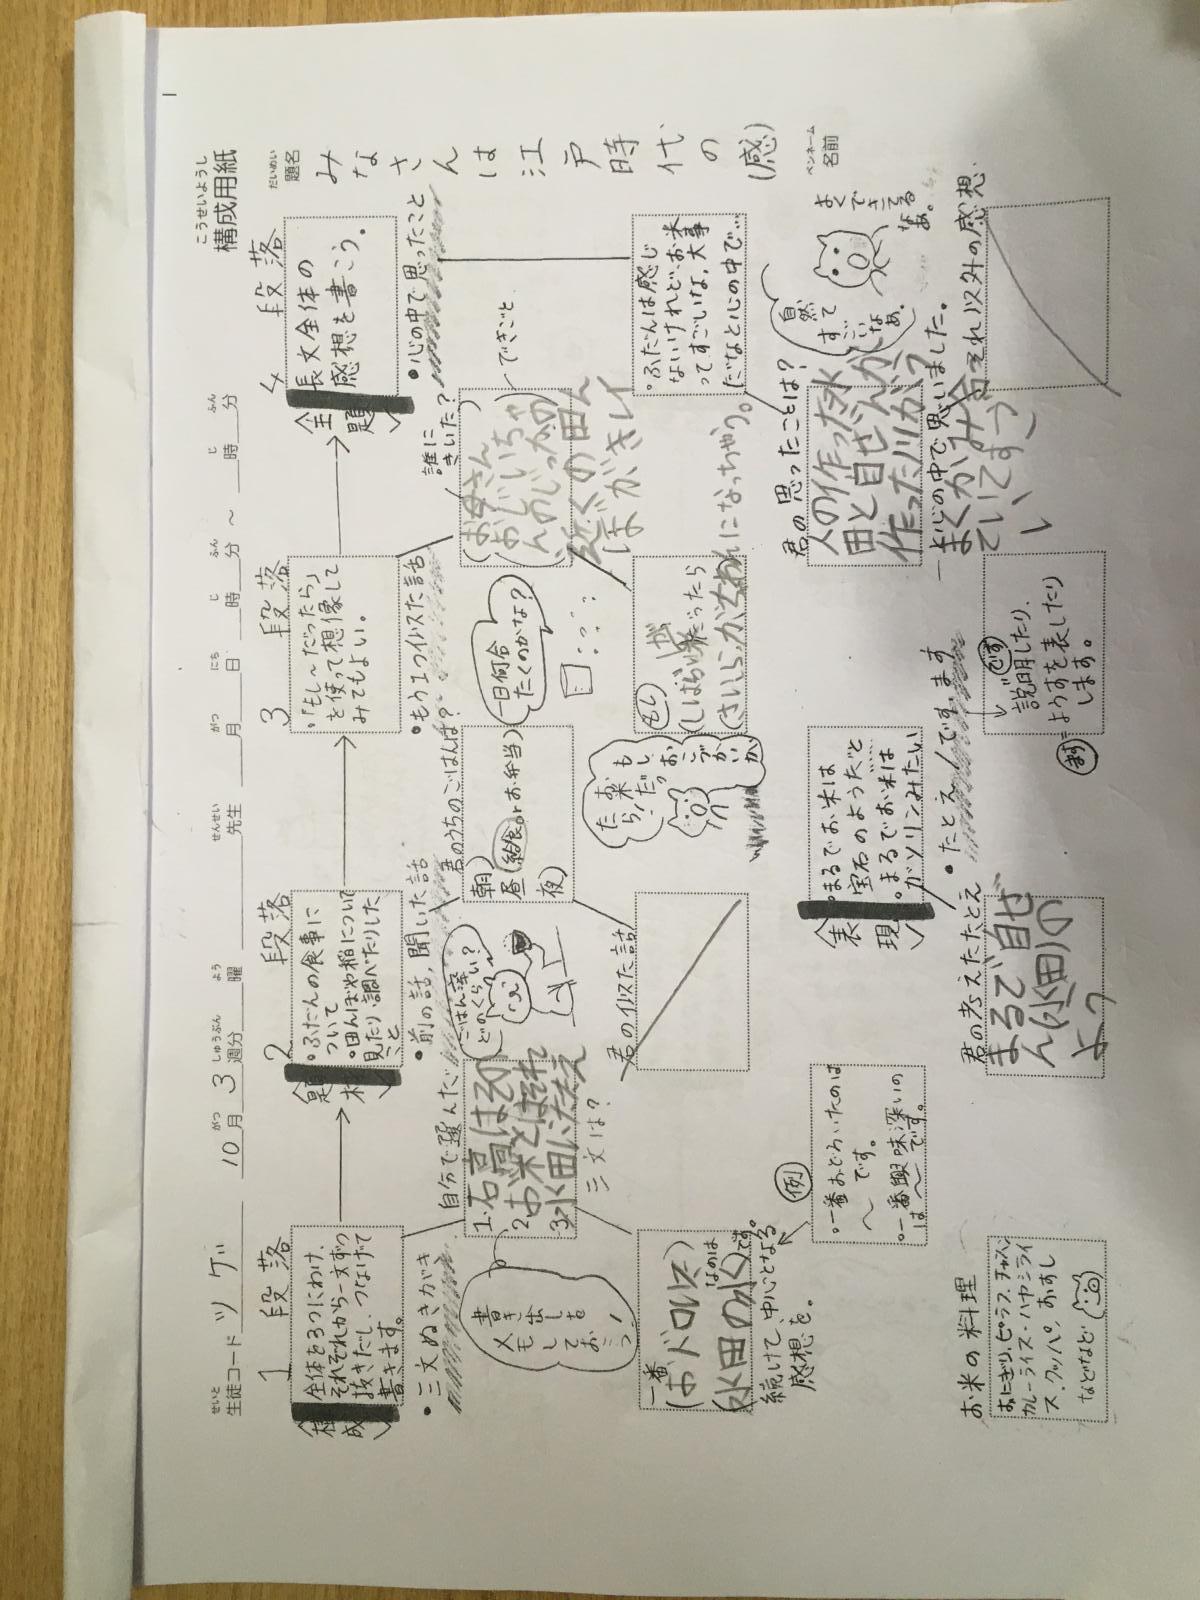 こうせいようし
構成用紙
せいと
生徒コード ツゲ//
10月 3週分 曜
がつ しゅうぶん よう
先生
せんせい
月 日 時 分 ～ 時 分
がつ にち じ ふん じ ふん
だいめい
題名
みなさんは江戸時代の(感)
ペンネーム
名前
1 段落
〈構成〉
全体を3つにわけ、
それぞれから一文ずつ
抜きだし、つなげて
書きます。
・三文ぬきがき
自分で選んだ
三文は?
1.石高は
2お米とはそれ
3水田にたたえ
書き出しを
メモして
おこう!
一番
(おドロいた)
なのは
(水田の水)です。
続けて、中心となる
感想を。
例
・一番おどろいたのは
～です。
・一番興味深いの
は～です。
お米の料理
おにぎり、ピラフ、チャーハン
カレーライス・ハヤシライ
ス、クッパ、おすし
などなど
2 段落
〈題材〉
・ふだんの食事に
ついて
・田んぼや稲について
見たり、調べたりした
こと
・前の話,聞いた話
君のうちのごはんは?
朝)
昼(給食orお弁当)
夜)
ごはん茶わん
どのくらい?
一日何合
たくのかな?
君の似た話
〈表現〉
・まるでお米は
宝石のようだと
・まるでお米は
ガソリンみたい
・たとえ/です、ます
君の考えたたとえ
まるで自ぜ
ん(水田)の
よう
です
説明したり、
ます=ようすを表したり
します。
3 段落
・「もし～だったら」
を使って想像して
みてもよい。
・もう1つ似た話
誰に
きいた?
できごと
(お母さん)
(おじいちゃ
んのじっか)
近くの田ん
ぼがキレイ
もし
お米
だったら!
もし
おこづかいが
君の思ったことは?
人の作った水
田と自ぜんが
作った川が?
まくがみ合
っていてすご
い
心の中で思いました。
4 段落
〈全題〉
長文全体の
感想を書こう。
・心の中で思ったこと
・ふだんは感じ
ないけれど、お米
ってすごいな,大事
だなと心の中で…
自然て
すごい
なあ。
よく
できてる
なあ。
それ以外の感想
1